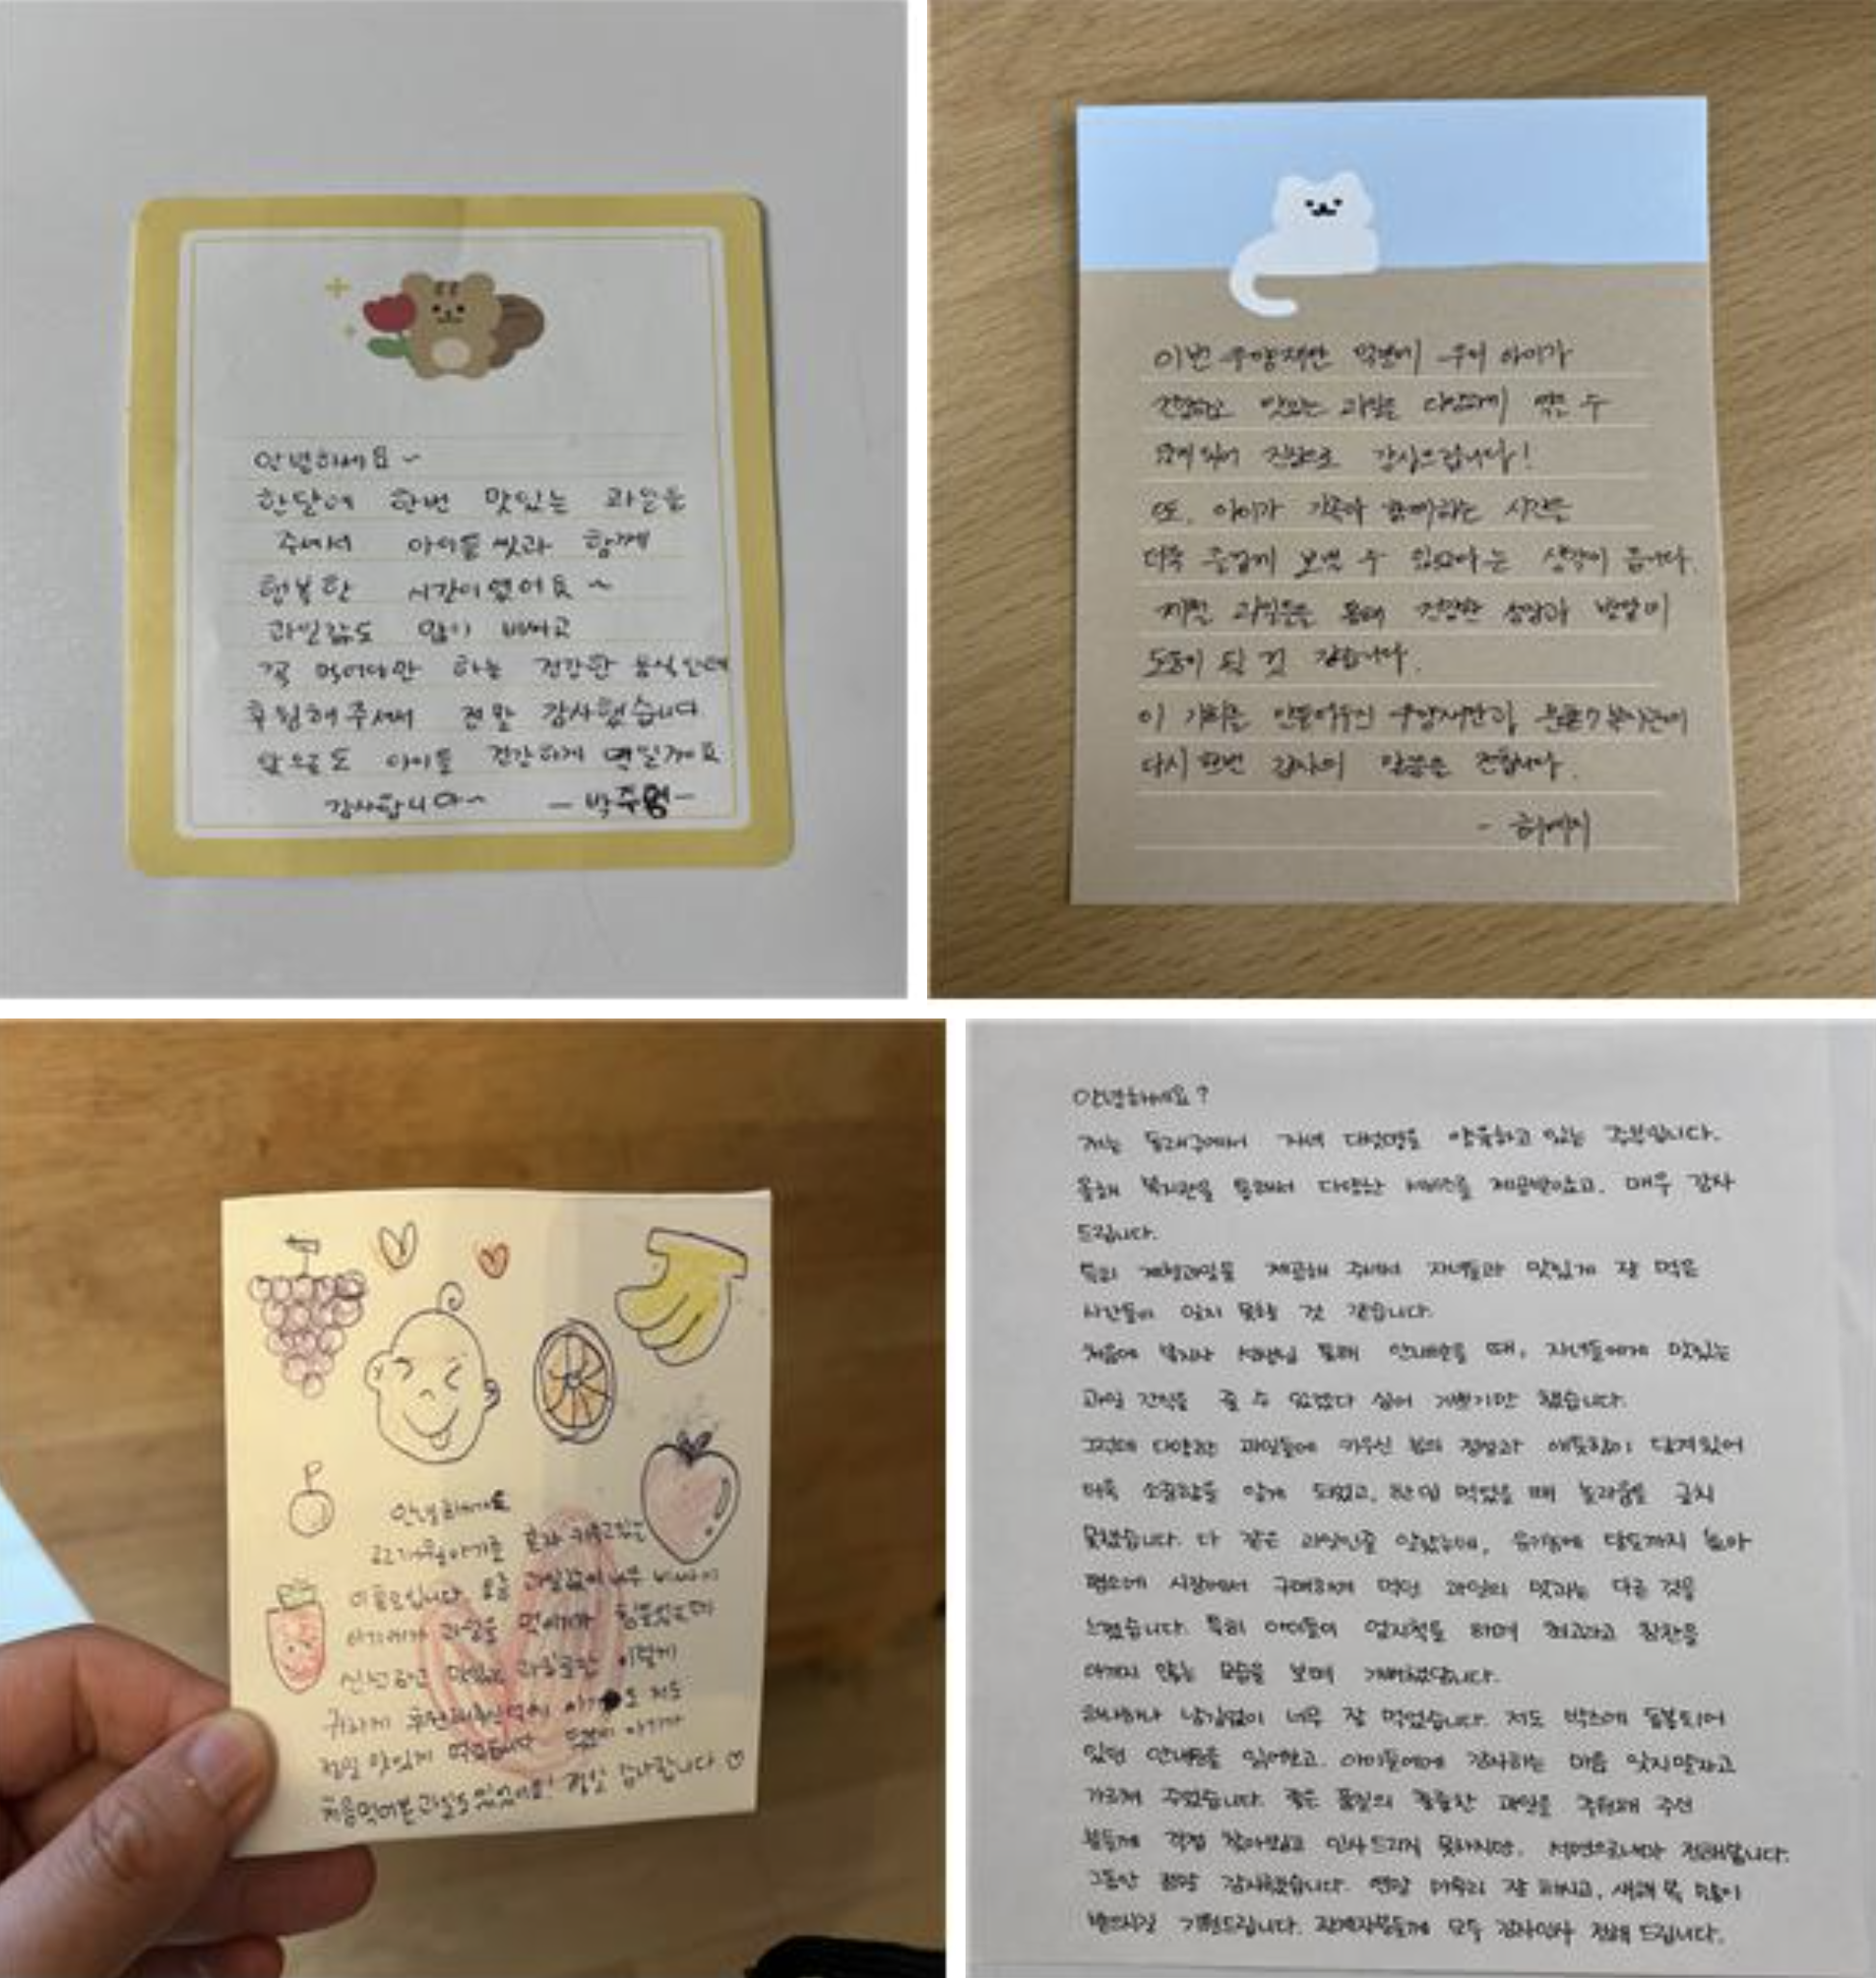 안녕하세요~
한달에 한번 맛있는 과일을
주셔서 아이들 씻과 함께
행복한 시간이였어요~
과일값도 많이 비싸고
꼭 먹어야만 하는 건강한 음식인데
후원해주셔서 정말 감사했습니다
앞으로도 아이들 건강하게 먹일게요
감사합니다~ -박주영-
이번 우양재단 덕분에 우리 아이가
건강하고 맛있는 과일을 다양하게 먹을 수
있게 되어 진심으로 감사드립니다!
또, 아이가 가족과 함께하는 시간을
더욱 즐겁게 보낼 수 있었다는 생각이 듭니다.
제철 과일들을 통해 건강한 성장과 발달에
도움이 될 것 같습니다.
이 기회를 만들어주신 우양재단과
다시 한번 감사의 말씀을 전합니다.
- 허예지
안녕하세요
22개월아기를 혼자 키우고있는
미혼모입니다 요즘 과일값이 너무 비싸서
아기에게 과일을 먹이기가 힘들었는데
신선하고 맛있는 과일로만 이렇게
귀하게 후원해주신덕에 아기도 저도
정말 맛있게 먹었습니다 덕분에 아기가
처음먹어본과일도있었어요! 정말 감사합니다 ♡
안녕하세요?
저는 동래구에서 자녀 다섯명을 양육하고 있는 주부입니다.
올해 복지관을 통해서 다양한 서비스를 제공받았고, 매우 감사
드립니다.
특히 제철과일을 제공해 주셔서 자녀들과 맛있게 잘 먹은
시간들이 잊지 못할 것 같습니다.
처음에 복지사 선생님 통해 안내받을 때, 자녀들에게 맛있는
과일 간식을 줄 수 있겠다 싶어 기쁘기만 했습니다.
그런데 다양한 과일들에 키우신 분의 정성과 애틋함이 담겨있어
더욱 소중함을 알게 되었고, 한입 먹었을 때 놀라움을 금치
못했습니다. 다 같은 과일인줄 알았는데, 유기농에 당도까지 높아
평소에 시장에서 구매하여 먹던 과일의 맛과는 다른 것을
느꼈습니다. 특히 아이들이 엄지척을 하며 최고라고 칭찬을
아끼지 않는 모습을 보며 기뻐했답니다.
하나하나 남김없이 너무 잘 먹었습니다. 저도 박스에 동봉되어
있던 안내문을 읽어보고, 아이들에게 감사하는 마음 잊지말자고
가르쳐 주었습니다. 좋은 품질의 훌륭한 과일을 후원해 주신
분들께 직접 찾아뵙고 인사드리지 못하지만, 서면으로나마 전해봅니다.
그동안 정말 감사했습니다. 연말 마무리 잘 하시고, 새해 복 많이
받으시길 기원드립니다. 관계자분들께 모두 감사인사 전해 드립니다.